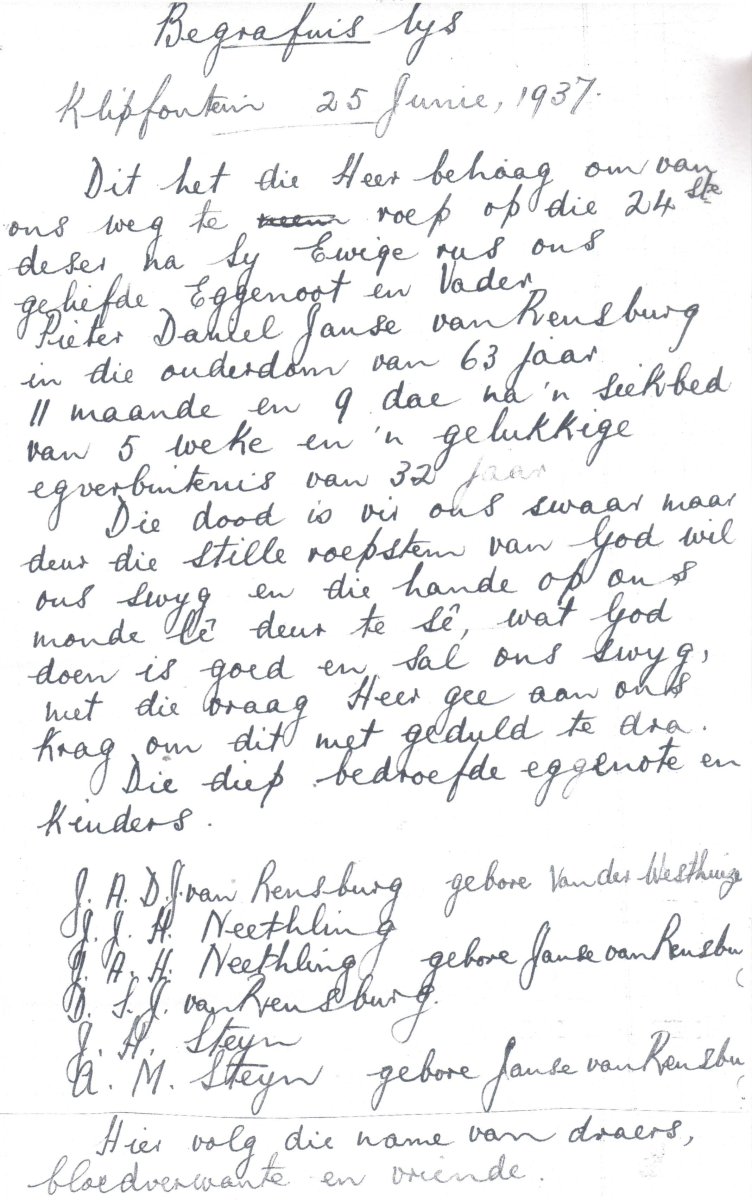 Begrafnis lys
Klipfontein 25 Junie, 1937.
Dit het die Heer behaag om van
ons weg te neem roep op die 24ste
deser na Sy Ewige rus ons
geliefde Eggenoot en Vader
Pieter Daniel Janse van Rensburg
in die ouderdom van 63 jaar
11 maande en 9 dae na 'n siekbed
van 5 weke en 'n gelukkige
egverbintenis van 32 jaar
Die dood is vir ons swaar maar
deur die stille roepstem van God wil
ons swyg en die hande op ons
monde lê deur te sê, wat God
doen is goed en sal ons swyg,
met die vraag Heer gee aan ons
Krag om dit met geduld te dra.
Die diep bedroefde eggenote en
Kinders.
J. A. D. J. van Rensburg gebore Van der Westhuize
J. J. H. Neethling
J. A. H. Neethling gebore Janse van Rensbu
D. S. J. van Rensburg.
J. H. Steyn
A. M. Steyn gebore Janse van Rensbu
Hier volg die name van draers,
bloedverwante en vriende.